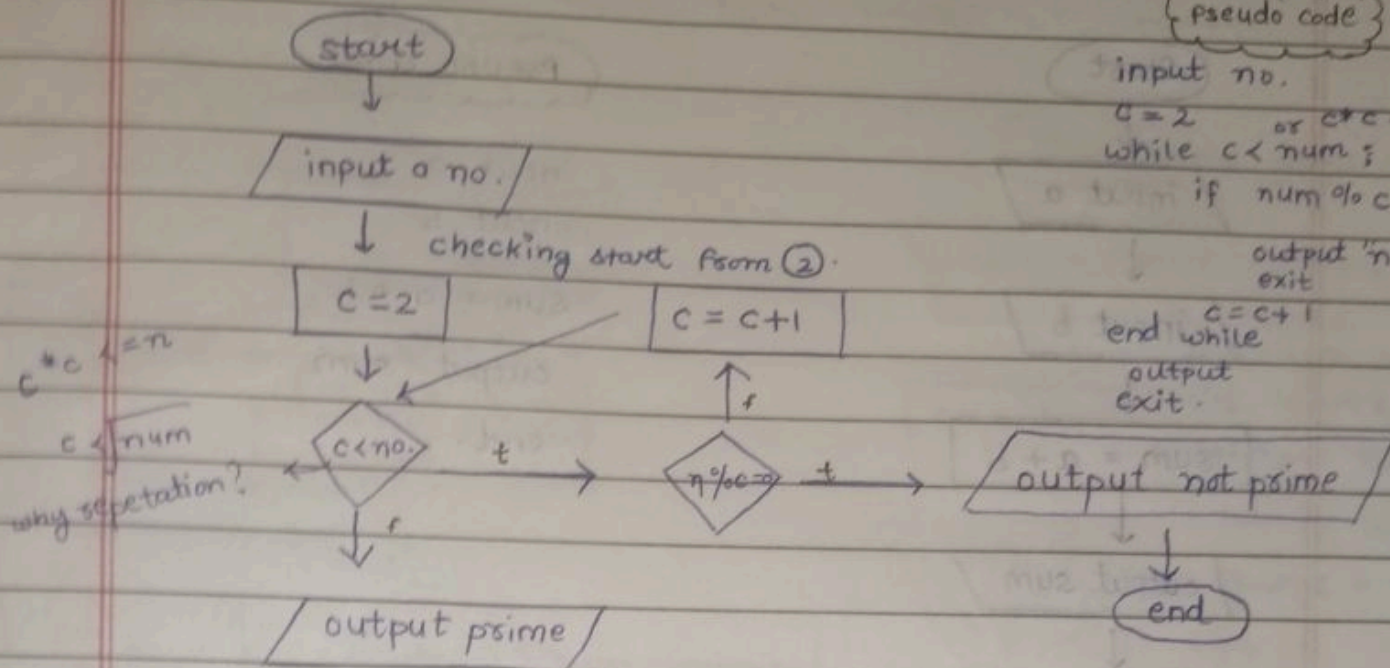 start
input a no.
checking start from ②.
c = 2
c = c+1
c*c <=n
c <√num
why repetation?
c<no.
t
f
n%c=0
f
t
output not prime
end
output prime
pseudo code
input no.
c = 2 or c*c
while c < num ;
if num % c
output "n
exit
c = c+1
end while
output
exit.